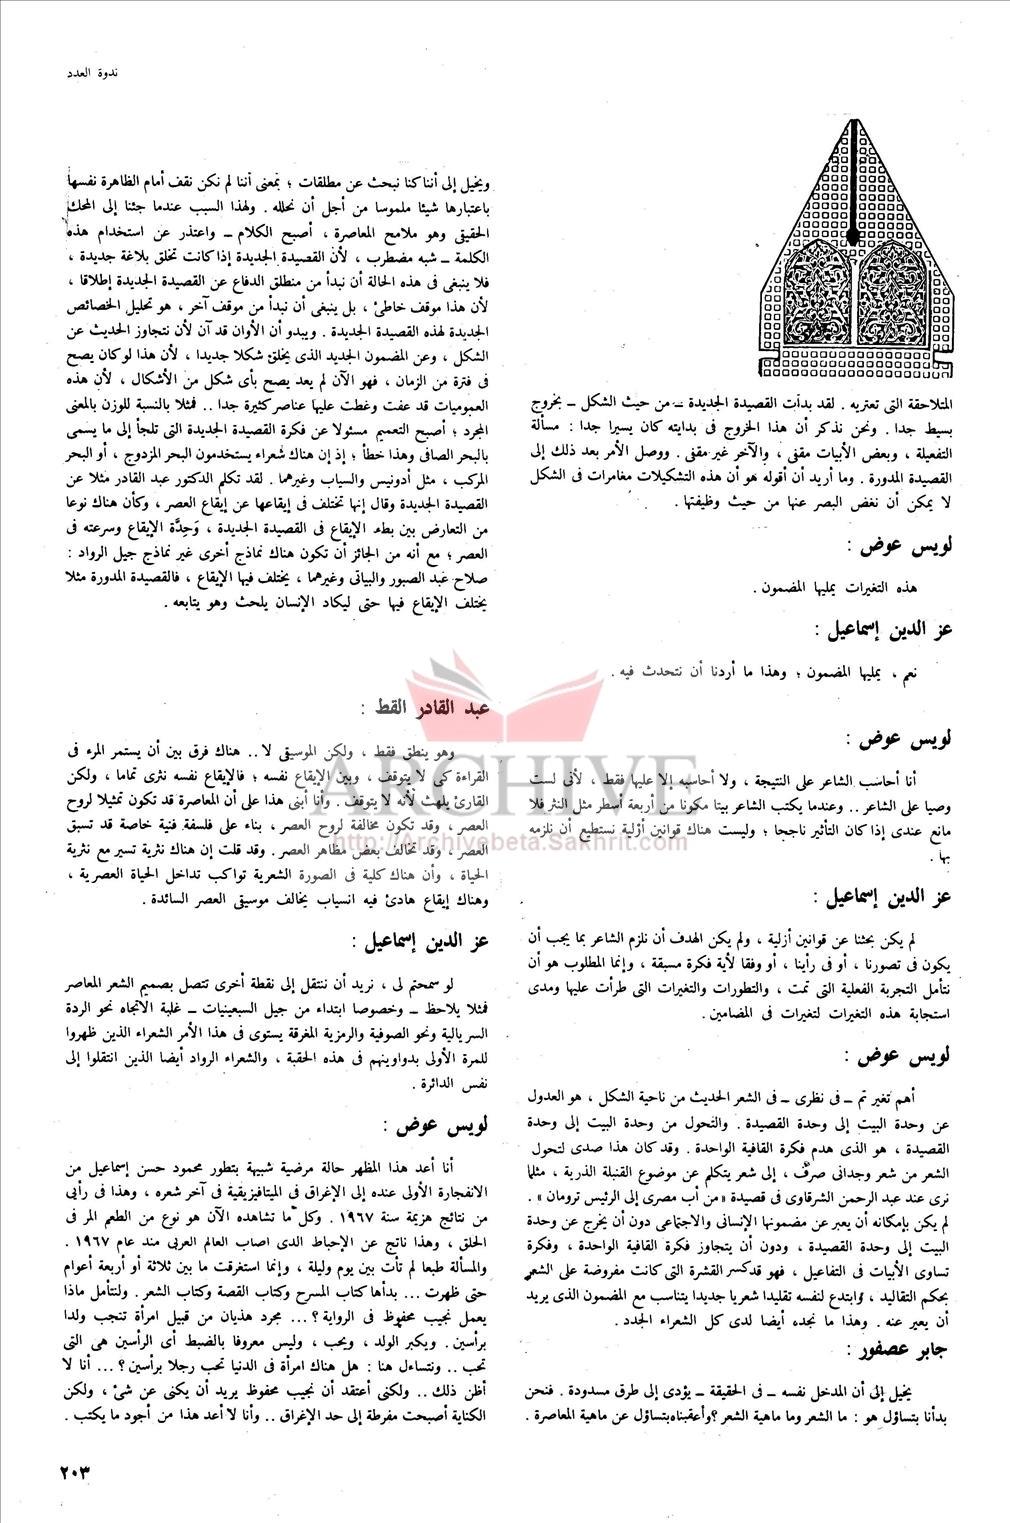 ندوة العدد
المتلاحقة التى تعتريه . لقد بدأت القصيدة الجديدة ــ من حيث الشكل ــ بخروج
بسيط جدا . ونحن نذكر أن هذا الخروج فى بدايته كان يسيرا جدا : مسألة
التفعيلة ، وبعض الأبيات مقفى ، والآخر غير مقفى . ووصل الأمر بعد ذلك إلى
القصيدة المدورة . وما أريد أن أقوله هو أن هذه التشكيلات مغامرات فى الشكل
لا يمكن أن نغض البصر عنها من حيث وظيفتها .
لويس عوض :
هذه التغيرات يمليها المضمون .
عز الدين إسماعيل :
نعم ، يمليها المضمون ؛ وهذا ما أردنا أن نتحدث فيه .
لويس عوض :
أنا أحاسب الشاعر على النتيجة ، ولا أحاسبه إلا عليها فقط ، لأنى لست
وصيا على الشاعر .. وعندما يكتب الشاعر بيتا مكونا من أربعة أسطر مثل النثر فلا
مانع عندى إذا كان التأثير ناجحا ؛ وليست هناك قوانين أزلية نستطيع أن نلزمه
بها .
عز الدين إسماعيل :
لم يكن بحثنا عن قوانين أزلية ، ولم يكن الهدف أن نلزم الشاعر بما يجب أن
يكون فى تصورنا ، أو فى رأينا ، أو وفقا لأية فكرة مسبقة ، وإنما المطلوب هو أن
نتأمل التجربة الفعلية التى تمت ، والتطورات والتغيرات التى طرأت عليها ومدى
استجابة هذه التغيرات لتغيرات فى المضامين .
لويس عوض :
أهم تغير تم ــ فى نظرى ــ فى الشعر الحديث من ناحية الشكل ، هو العدول
عن وحدة البيت إلى وحدة القصيدة . والتحول من وحدة البيت إلى وحدة
القصيدة ، هو الذى هدم فكرة القافية الواحدة . وقد كان هذا صدى لتحول
الشعر من شعر وجدانى صرف ، إلى شعر يتكلم عن موضوع القنبلة الذرية ، مثلما
نرى عند عبد الرحمن الشرقاوى فى قصيدة «من أب مصرى إلى الرئيس ترومان» .
لم يكن بإمكانه أن يعبر عن مضمونها الإنسانى والاجتماعى دون أن يخرج عن وحدة
البيت إلى وحدة القصيدة ، ودون أن يتجاوز فكرة القافية الواحدة ، وفكرة
تساوى الأبيات فى التفاعيل ، فهو قد كسر القشرة التى كانت مفروضة على الشعر
بحكم التقاليد ، وابتدع لنفسه تقليدا شعريا جديدا يتناسب مع المضمون الذى يريد
أن يعبر عنه . وهذا ما نجده أيضا لدى كل الشعراء الجدد .
جابر عصفور :
يخيل إلى أن المدخل نفسه ــ فى الحقيقة ــ يؤدى إلى طرق مسدودة . فنحن
بدأنا بتساؤل هو : ما الشعر وما ماهية الشعر ؟ وأعقبناه بتساؤل عن ماهية المعاصرة .
ويخيل إلى أننا كنا نبحث عن مطلقات ؛ بمعنى أننا لم نكن نقف أمام الظاهرة نفسها
باعتبارها شيئا ملموسا من أجل أن نحلله . ولهذا السبب عندما جئنا إلى المحك
الحقيقى وهو ملامح المعاصرة ، أصبح الكلام ــ واعتذر عن استخدام هذه
الكلمة ــ شبه مضطرب ، لأن القصيدة الجديدة إذا كانت تخلق بلاغة جديدة ،
فلا ينبغى فى هذه الحالة أن نبدأ من منطلق الدفاع عن القصيدة الجديدة إطلاقا ،
لأن هذا موقف خاطئ ، بل ينبغى أن نبدأ من موقف آخر ، هو تحليل الخصائص
الجديدة لهذه القصيدة الجديدة . ويبدو أن الأوان قد آن لأن نتجاوز الحديث عن
الشكل ، وعن المضمون الجديد الذى يخلق شكلا جديدا ، لأن هذا لو كان يصح
فى فترة من الزمان ، فهو الآن لم يعد يصح بأى شكل من الأشكال ، لأن هذه
العموميات قد عفت وغطت عليها عناصر كثيرة جدا .. فمثلا بالنسبة للوزن بالمعنى
المجرد ؛ أصبح التعميم مسئولا عن فكرة القصيدة الجديدة التى تلجأ إلى ما يسمى
بالبحر الصافى وهذا خطأ ؛ إذ إن هناك شعراء يستخدمون البحر المزدوج ، أو البحر
المركب ، مثل أدونيس والسياب وغيرهما . لقد تكلم الدكتور عبد القادر مثلا عن
القصيدة الجديدة وقال إنها تختلف فى إيقاعها عن إيقاع العصر ، وكأن هناك نوعا
من التعارض بين بطء الإيقاع فى القصيدة الجديدة ، وَحِدَّة الإيقاع وسرعته فى
العصر ؛ مع أنه من الجائز أن تكون هناك نماذج أخرى غير نماذج جيل الرواد :
صلاح عبد الصبور والبياتى وغيرهما ، يختلف فيها الإيقاع ، فالقصيدة المدورة مثلا
يختلف الإيقاع فيها حتى ليكاد الإنسان يلحث وهو يتابعه .
عبد القادر القط :
وهو ينطق فقط ، ولكن الموسيقى لا .. هناك فرق بين أن يستمر المرء فى
القراءة كى لا يتوقف ، وبين الإيقاع نفسه ؛ فالإيقاع نفسه نثرى تماما ، ولكن
القارئ يلهث لأنه لا يتوقف . وأنا أبنى هذا على أن المعاصرة قد تكون تمثيلا لروح
العصر ، وقد تكون مخالفة لروح العصر ، بناء على فلسفة فنية خاصة قد تسبق
العصر ، وقد تخالف بعض مظاهر العصر . وقد قلت إن هناك نثرية تسير مع نثرية
الحياة ، وأن هناك كلية فى الصورة الشعرية تواكب تداخل الحياة العصرية ،
وهناك إيقاع هادئ فيه انسياب يخالف موسيقى العصر السائدة .
عز الدين إسماعيل :
لو سمحتم لى ، نريد أن ننتقل إلى نقطة أخرى تتصل بصميم الشعر المعاصر
فمثلا يلاحظ ــ وخصوصا ابتداء من جيل السبعينيات ــ غلبة الاتجاه نحو الردة
السريالية ونحو الصوفية والرمزية المغرقة يستوى فى هذا الأمر الشعراء الذين ظهروا
للمرة الأولى بدواوينهم فى هذه الحقبة ، والشعراء الرواد أيضا الذين انتقلوا إلى
نفس الدائرة .
لويس عوض :
أنا أعد هذا المظهر حالة مرضية شبيهة بتطور محمود حسن إسماعيل من
الانفجارة الأولى عنده إلى الإغراق فى الميتافيزيقية فى آخر شعره ، وهذا فى رأيى
من نتائج هزيمة سنة ١٩٦٧ . وكل ما تشاهده الآن هو نوع من الطعم المر فى
الحلق ، وهذا ناتج عن الإحباط الذى اصاب العالم العربى منذ عام ١٩٦٧ .
والمسألة طبعا لم تأت بين يوم وليلة ، وإنما استغرقت ما بين ثلاثة أو أربعة أعوام
حتى ظهرت ... بدأها كتاب المسرح وكتاب القصة وكتاب الشعر . ولنتأمل ماذا
يعمل نجيب محفوظ فى الرواية ؟ ... مجرد هذيان من قبيل امرأة تنجب ولدا
برأسين . ويكبر الولد ، ويحب ، وليس معروفا بالضبط أى الرأسين هى التى
تحب .. ونتساءل هنا : هل هناك امرأة فى الدنيا تحب رجلا برأسين ؟ ... أنا لا
أظن ذلك .. ولكنى أعتقد أن نجيب محفوظ يريد أن يكنى عن شئ ، ولكن
الكناية أصبحت مفرطة إلى حد الإغراق .. وأنا لا أعد هذا من أجود ما يكتب .
٢٠٣
ARCHIVE
http://Archivebeta.Sakhrit.com